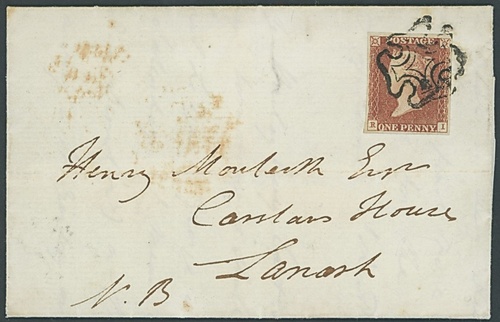 POSTAGE
R I
ONE PENNY
Henry Monteith Esqr
Carstairs House
Lanark
N.B